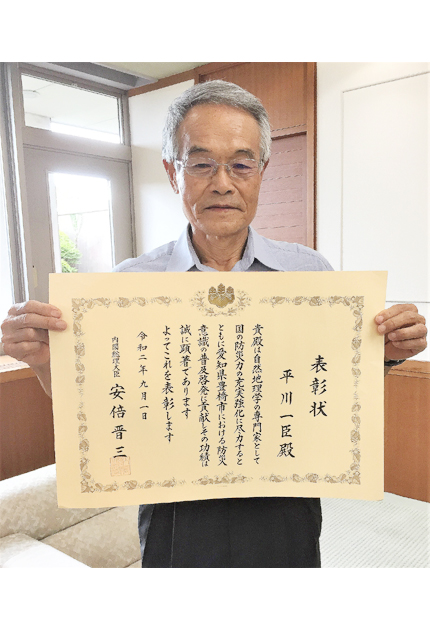 表彰状
平川一臣殿
貴殿は自然地理学の専門家として
国の防災力の充実強化に尽力すると
ともに愛知県豊橋市における防災
意識の普及啓発に貢献しその功績は
誠に顕著であります
よってこれを表彰します
令和二年九月一日
内閣総理大臣
安倍晋三